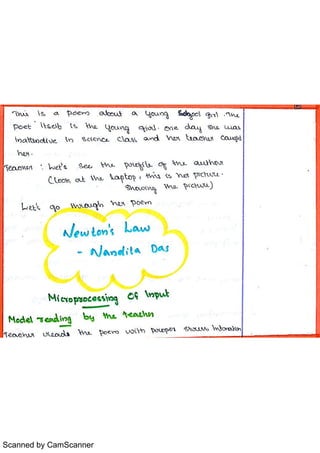 This is a poem about a young School girl. The
poet itself is the young girl. One day she was
inattandive in science class and her teacher caught
her.
Teacher : Let's see the profile of the author
(Look at the laptop, this is her picture.
Showing the picture)
Let's go through her poem
Newton's Law
- Nandita Das
Microprocessing of Input
Model reading by the teacher
Teacher reads the poem with proper stress, Intonation